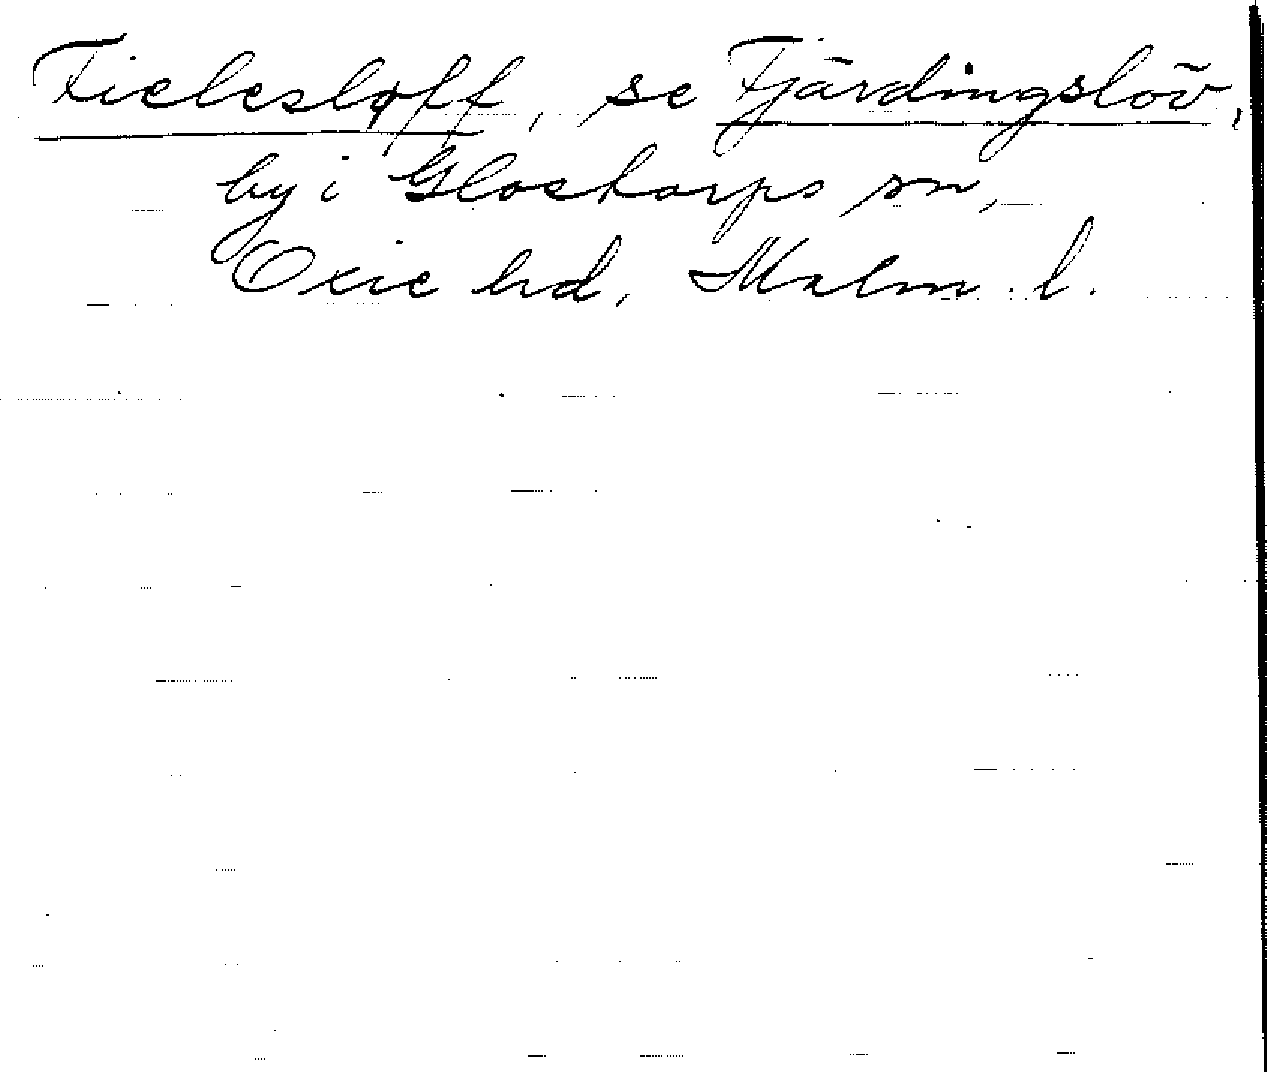 Fielesløff, se Fjärdingslöv,
by i Glostorps sn,
Oxie hd, Malm. l.